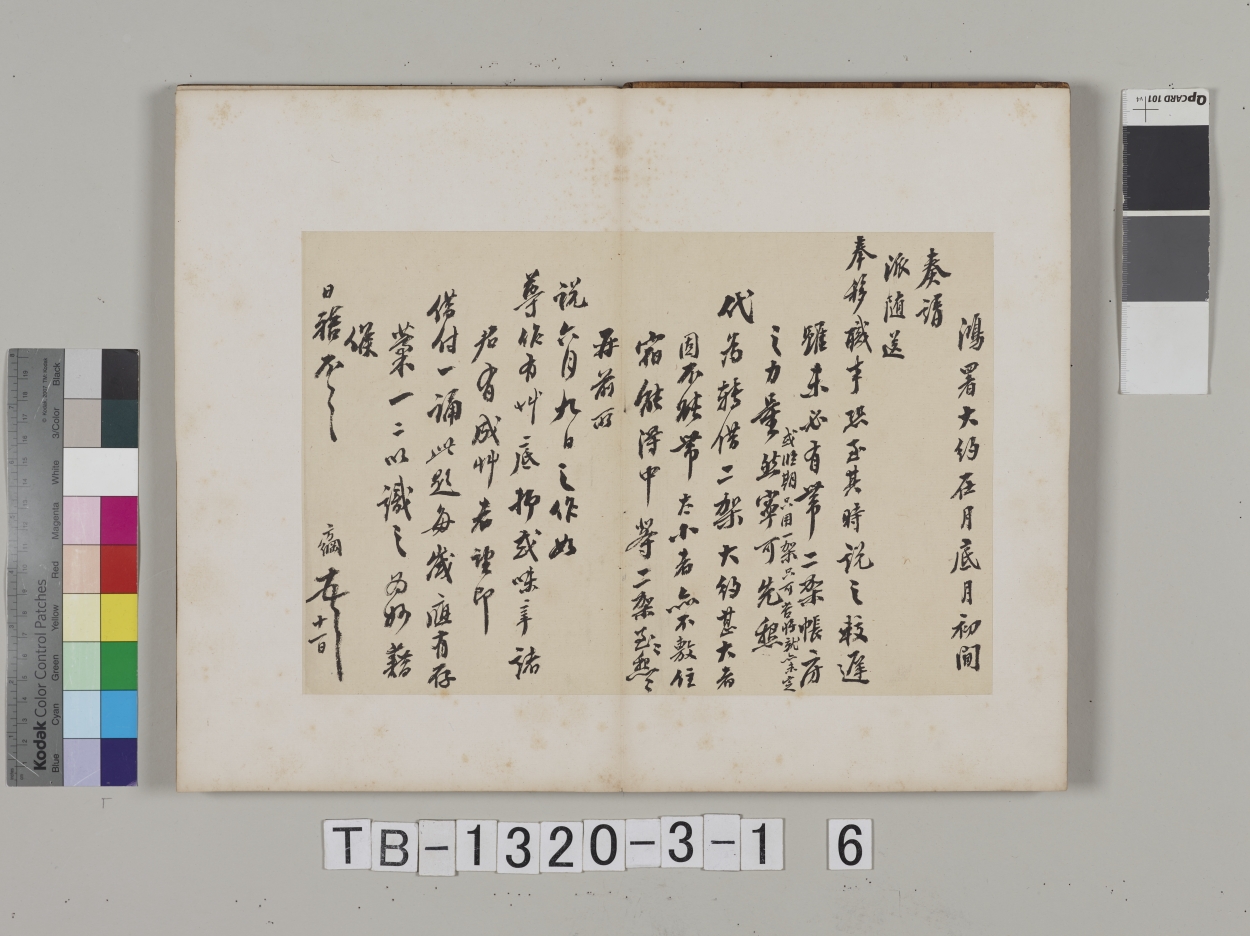 鴻署大約在月底月初間
奏請
派随送
奉移職事恐至其時説之較遲
雖未必有帶二架帳房
之力量然寧可先懇
或臨期只用一架只可
代為轉借二架大約甚大者
固不能帶太小者亦不敷住
宿能得中等二架至懇
再前所
説六月九日之作如
尊作有艸底抑或味辛諸
君有成艸者望即
借付一誦此題每歲應有存
藁一二以識之為妙藉
候
日禧不
十一日
Kodak Color Control Patches
Blue Cyan Green Yellow Red Magenta White 3/Color Black
QpCARD 101 v4
TB-1320-3-1 6